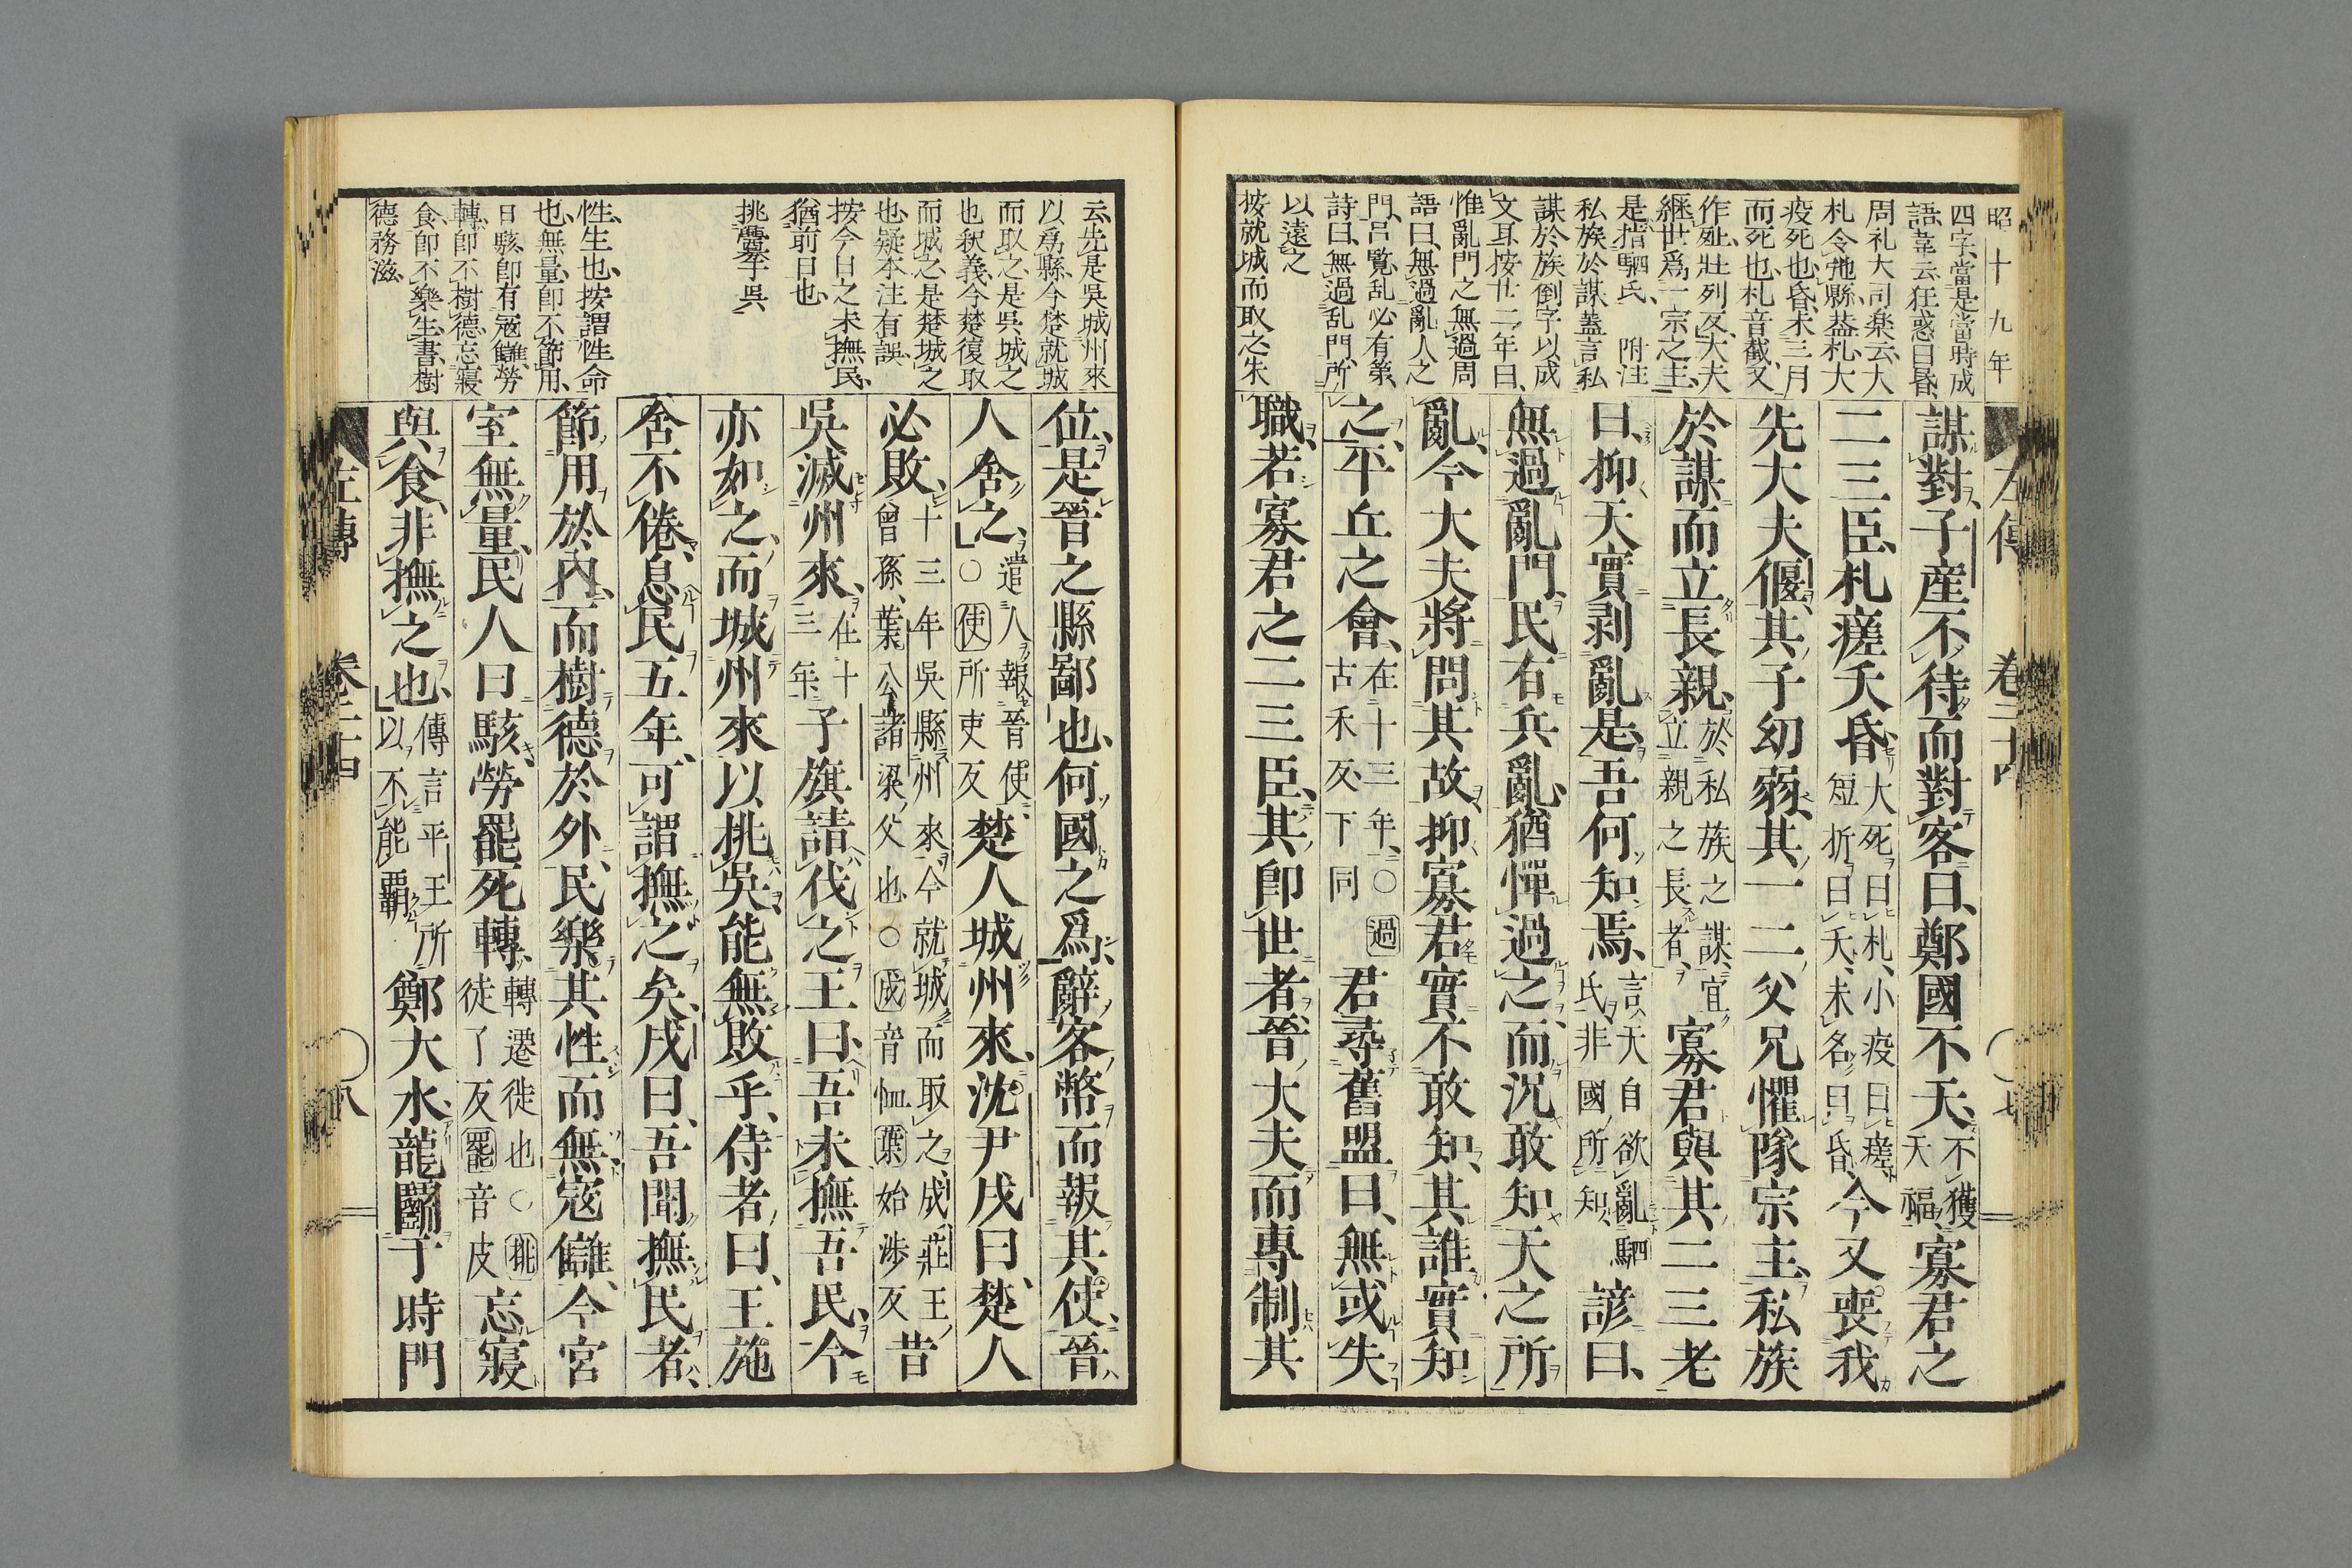 昭十九年
四字當是當時成
語韋云狂惑曰昏
周礼大司楽云大
札令弛縣盖札大
疫死也昏未三月
而死也札音截又
作𣧑壯列反大夫
継世爲一宗之主
是指駟氏 附注
私族於謀蓋言私
謀於族倒字以成
文耳按廿二年曰
惟亂門之無過周
語曰無過亂人之
門呂覧乱必有第
詩曰無過乱門所
以遠之
按就城而取之朱
左傳 卷二十四 七
謀對子産不待而對客曰鄭國不天不獲天福寡君之
二三臣札瘥夭昏大死曰札小疫曰瘥短折曰夭未名曰昏今又喪我
先大夫偃其子幼弱其一二父兄懼隊宗主私族
於謀而立長親於私族之謀宜立親之長者寡君與其二三老
曰抑天實剥亂是吾何知焉言天自欲亂駟氏非國所知諺曰
無過亂門民有兵亂猶憚過之而况敢知天之所
亂今大夫將問其故抑寡君實不敢知其誰實知
之平丘之會在十三年○過古禾反下同君尋舊盟曰無或失
職若寡君之二三臣其即世者晉大夫而專制其
云先是吳城州來
以爲縣今楚就城
而取之是吳城之
也釈義今楚復取
而城之是楚城之
也疑本注有誤
按今日之未撫民
猶前日也
挑𦥷拏于吳
性生也按謂性命
也無量即不節用
日駭即有寇讎勞
轉即不樹德忘寢
食即不樂生書樹
德務滋
位是晉之縣鄙也何國之爲辭客幣而報其使晉
人舍之遣人報晉使○使所吏反楚人城州來沈尹戌曰楚人
必敗十三年吳縣州來今就城而取之戌莊王曾孫葉公諸梁父也○戌音恤葉始渉反昔
吳滅州來在十三年子旗請伐之王曰吾未撫吾民今
亦如之而城州來以挑吳能無敗乎侍者曰王施
舍不倦息民五年可謂撫之矣戌曰吾聞撫民者
節用於內而樹德於外民樂其性而無寇讎今宮
室無量民人日駭勞罷死轉轉遷徙也○挑徒了反罷音皮忘寢
與食非撫之也傳言平王所以不能覇鄭大水龍鬬于時門
左傳 卷二十四 八